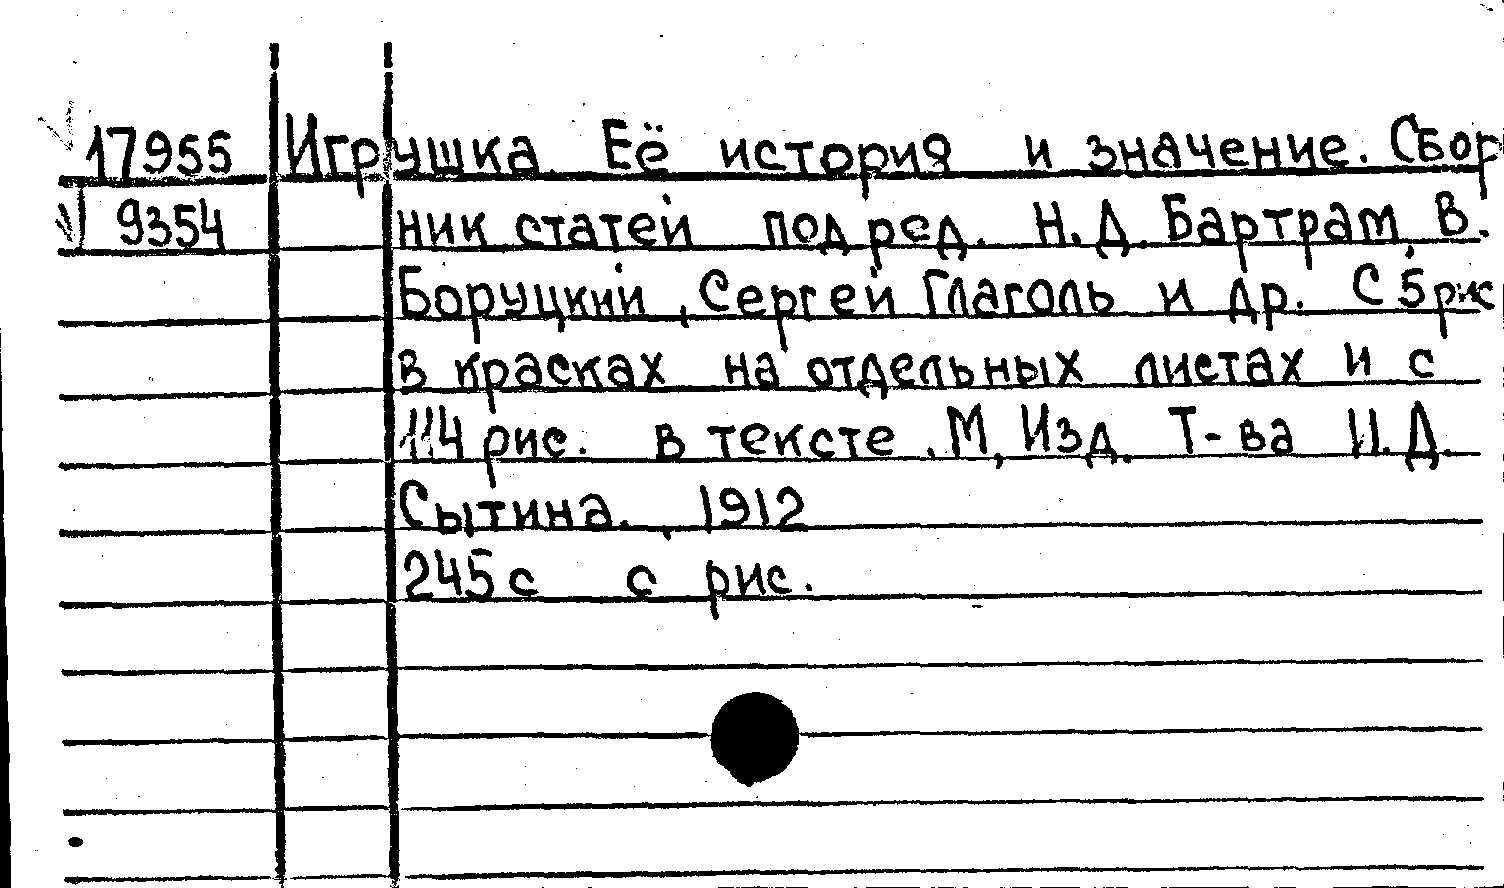 17955 Игрушка. Её история и значение. Сбор
9354 ник статей под ред. Н. Д. Бартрам, В.
Боруцкий, Сергей Глаголь и др. С 5 рис
в красках на отдельных листах и с
114 рис. в тексте. М, Изд. Т-ва И. Д.
Сытина., 1912
245 с с рис.